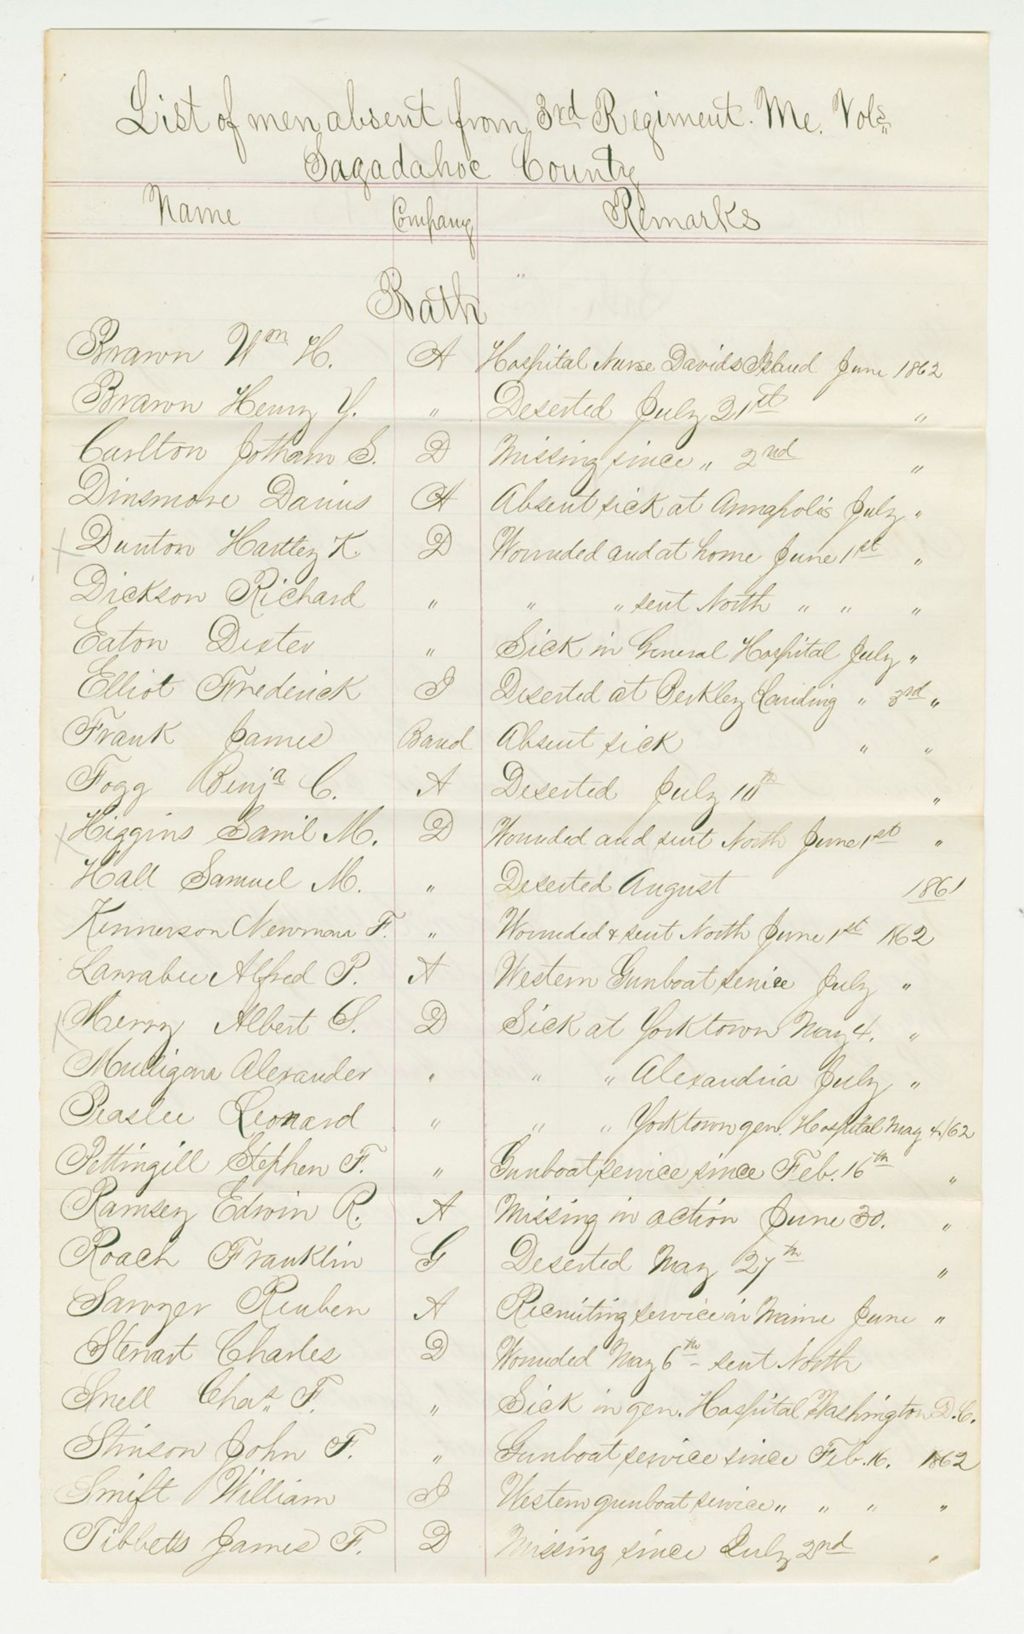 List of men absent from 3rd Regiment. Me. Vols.
Sagadahoc County
Name Company Remarks
Bath
Brawn Wm H. A Hospital Nurse Davids Island June 1862
Brawn Henry Y. " Deserted July 21st "
Carlton Jotham S. D Missing since " 2nd "
Dinsmore Darius A Absent sick at Annapolis July "
Dunton Hartley K. D Wounded and at home June 1st "
Dickson Richard " " " sent North " " "
Eaton Dexter " Sick in General Hospital July "
Elliot Frederick I Deserted at Berkley Landing " 3rd "
Frank James Band Absent sick " "
Fogg Benja C. A Deserted July "
Higgins Saml M. D Wounded and sent North June 1st "
Hall Samuel M. " Deserted August 1861
Kennerson Newman F. " Wounded & sent North June 1st 1862
Larrabee Alfred P. A Western Gunboat service July "
Merry Albert S. D Sick at Yorktown May 4. "
Mulligan Alexander " " " Alexandria July "
Peaslee Leonard " " " Yorktown gen. Hospital May 4/62
Pettingill Stephen F. " Gunboat service since Feb. 16th "
Ramsey Edwin R. A Missing in action June 30. "
Roach Franklin G Deserted May 27th "
Sawyer Reuben A Recruiting service in Maine June "
Stewart Charles D Wounded May 6th sent North
Snell Chas. F. " Sick in gen. Hospital Washington D.C.
Stinson John F. " Gunboat service since Feb. 16. 1862
Swift William I Western gunboat service " " " "
Tibbetts James F. D Missing since July 2nd "